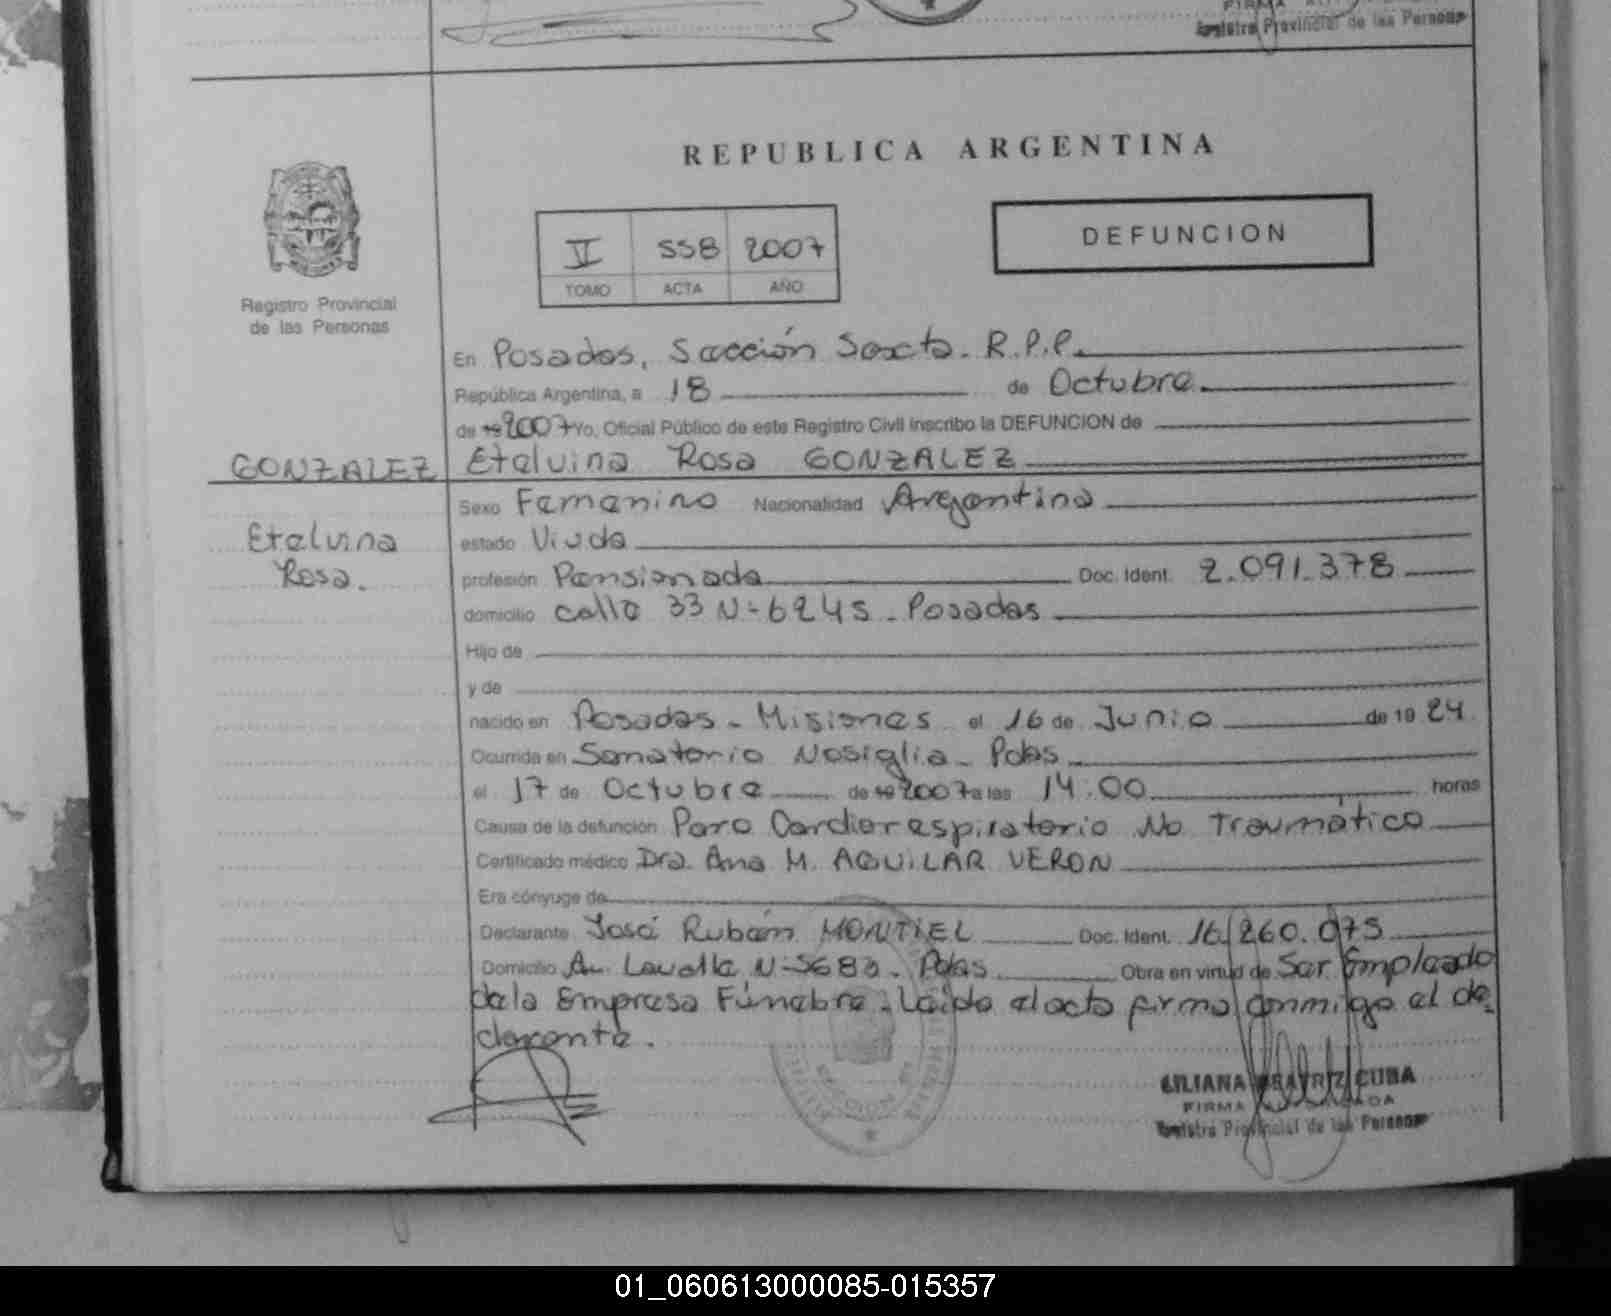 Registro Provincial de las Personas
REPUBLICA ARGENTINA
V 558 2007
TOMO ACTA AÑO
DEFUNCION
Registro Provincial
de las Personas
En Posadas, Sección Sexta. R.P.P.
República Argentina, a 18 de Octubre
de 19 2007 Yo, Oficial Público de este Registro Civil inscribo la DEFUNCION de
GONZALEZ Etelvina Rosa GONZALEZ
Sexo Femenino Nacionalidad Argentina
Etelvina
Rosa.
estado Viuda
profesión Pensionada Doc. Ident. 2.091.378
domicilio calle 33 N- 6245 - Posadas
Hijo de
y de
nacido en Posadas - Misiones el 16 de Junio de 19 24
Ocurrida en Sanatorio Nosiglia - Pdas
el 17 de Octubre de 19 2007 a las 14:00 horas
Causa de la defunción Paro Cardiorrespiratorio No Traumático
Certificado médico Dra. Ana M. AGUILAR VERON
Era cónyuge de
Declarante José Rubén MONTIEL Doc. Ident. 16.260.075
Domicilio Av. Lavalle N- 5683 - Pdas Obra en virtud de Ser Empleado
de la Empresa Fúnebre - Leída el acta firma conmigo el de-
clarante.
LILIANA BEATRIZ CUBA
FIRMA
Registro Provincial de las Personas
01_060613000085-015357